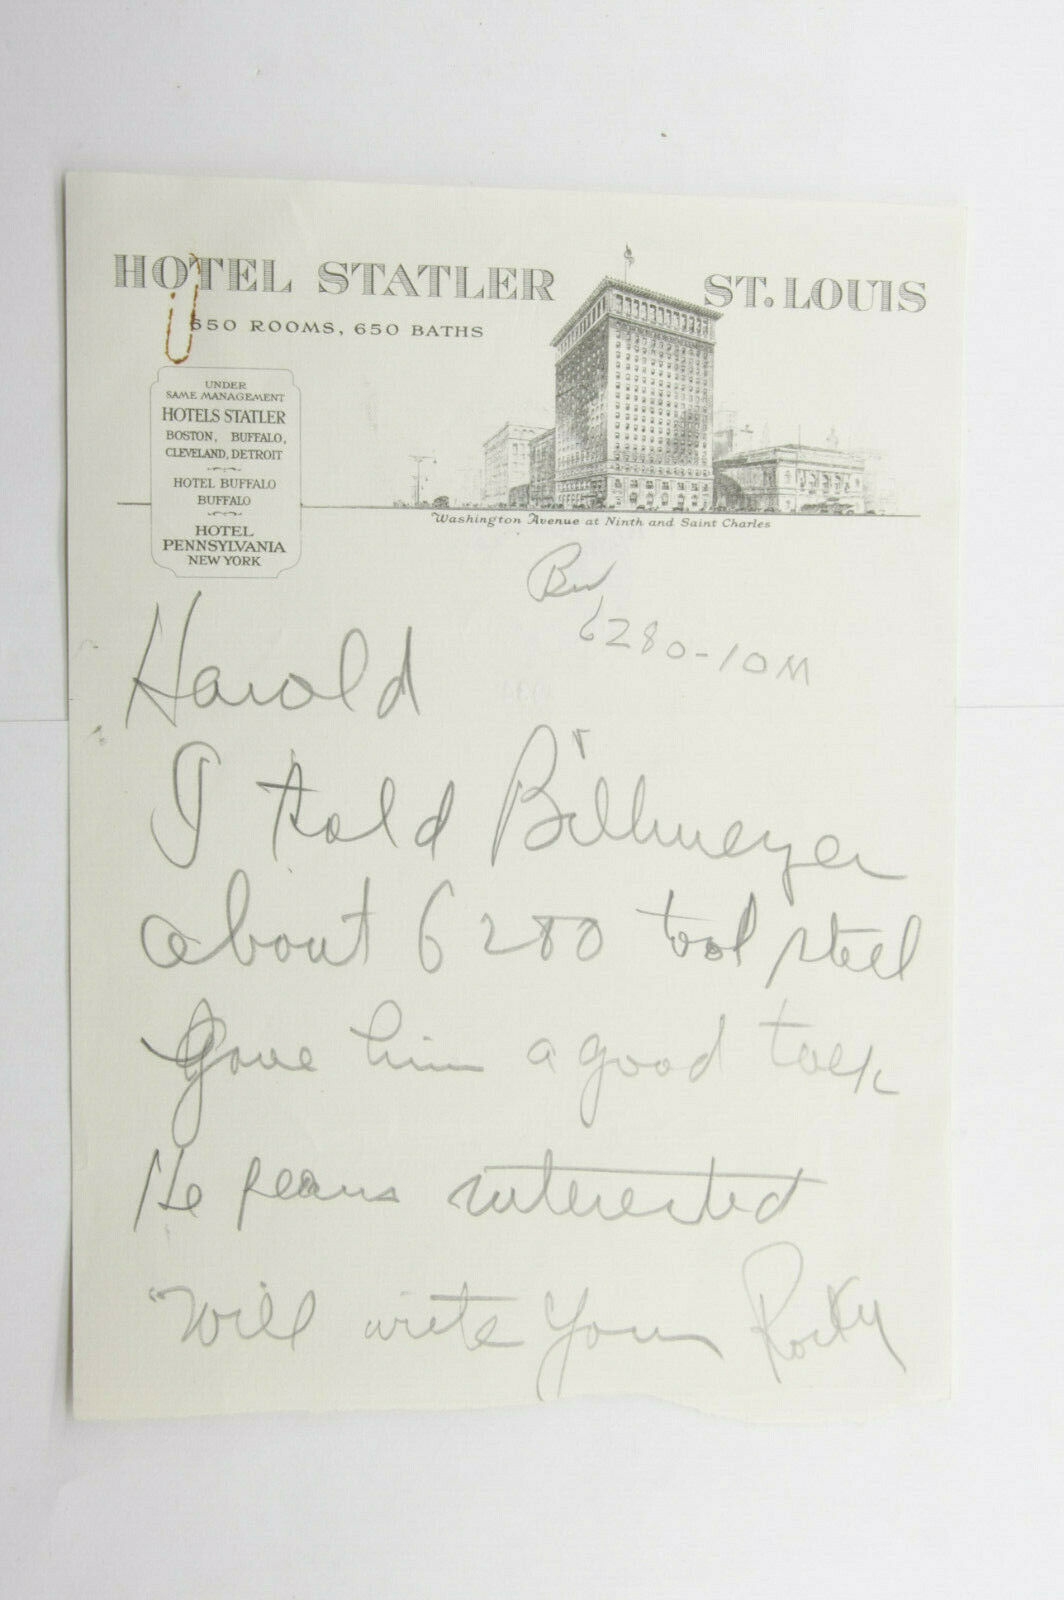 HOTEL STATLER ST. LOUIS
650 ROOMS, 650 BATHS
UNDER
SAME MANAGEMENT
HOTELS STATLER
BOSTON, BUFFALO,
CLEVELAND, DETROIT
HOTEL BUFFALO
BUFFALO
HOTEL
PENNSYLVANIA
NEW YORK
Washington Avenue at Ninth and Saint Charles
6280-10M
Harold
I told Billmeyer
about 6280 tool steel
Gave him a good talk
He seems interested
Will write
Rocky